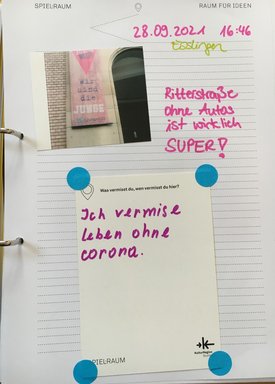 SPIELRAUM
RAUM FÜR IDEEN
28.09.2021 16:46
Esslingen
wir
sind die
JUNGE
Ritterstraße
ohne Autos
ist wirklich
SUPER!
Was vermisst du, wen vermisst du hier?
Ich vermise
leben ohne
corona.
KulturRegion
SPIELRAUM